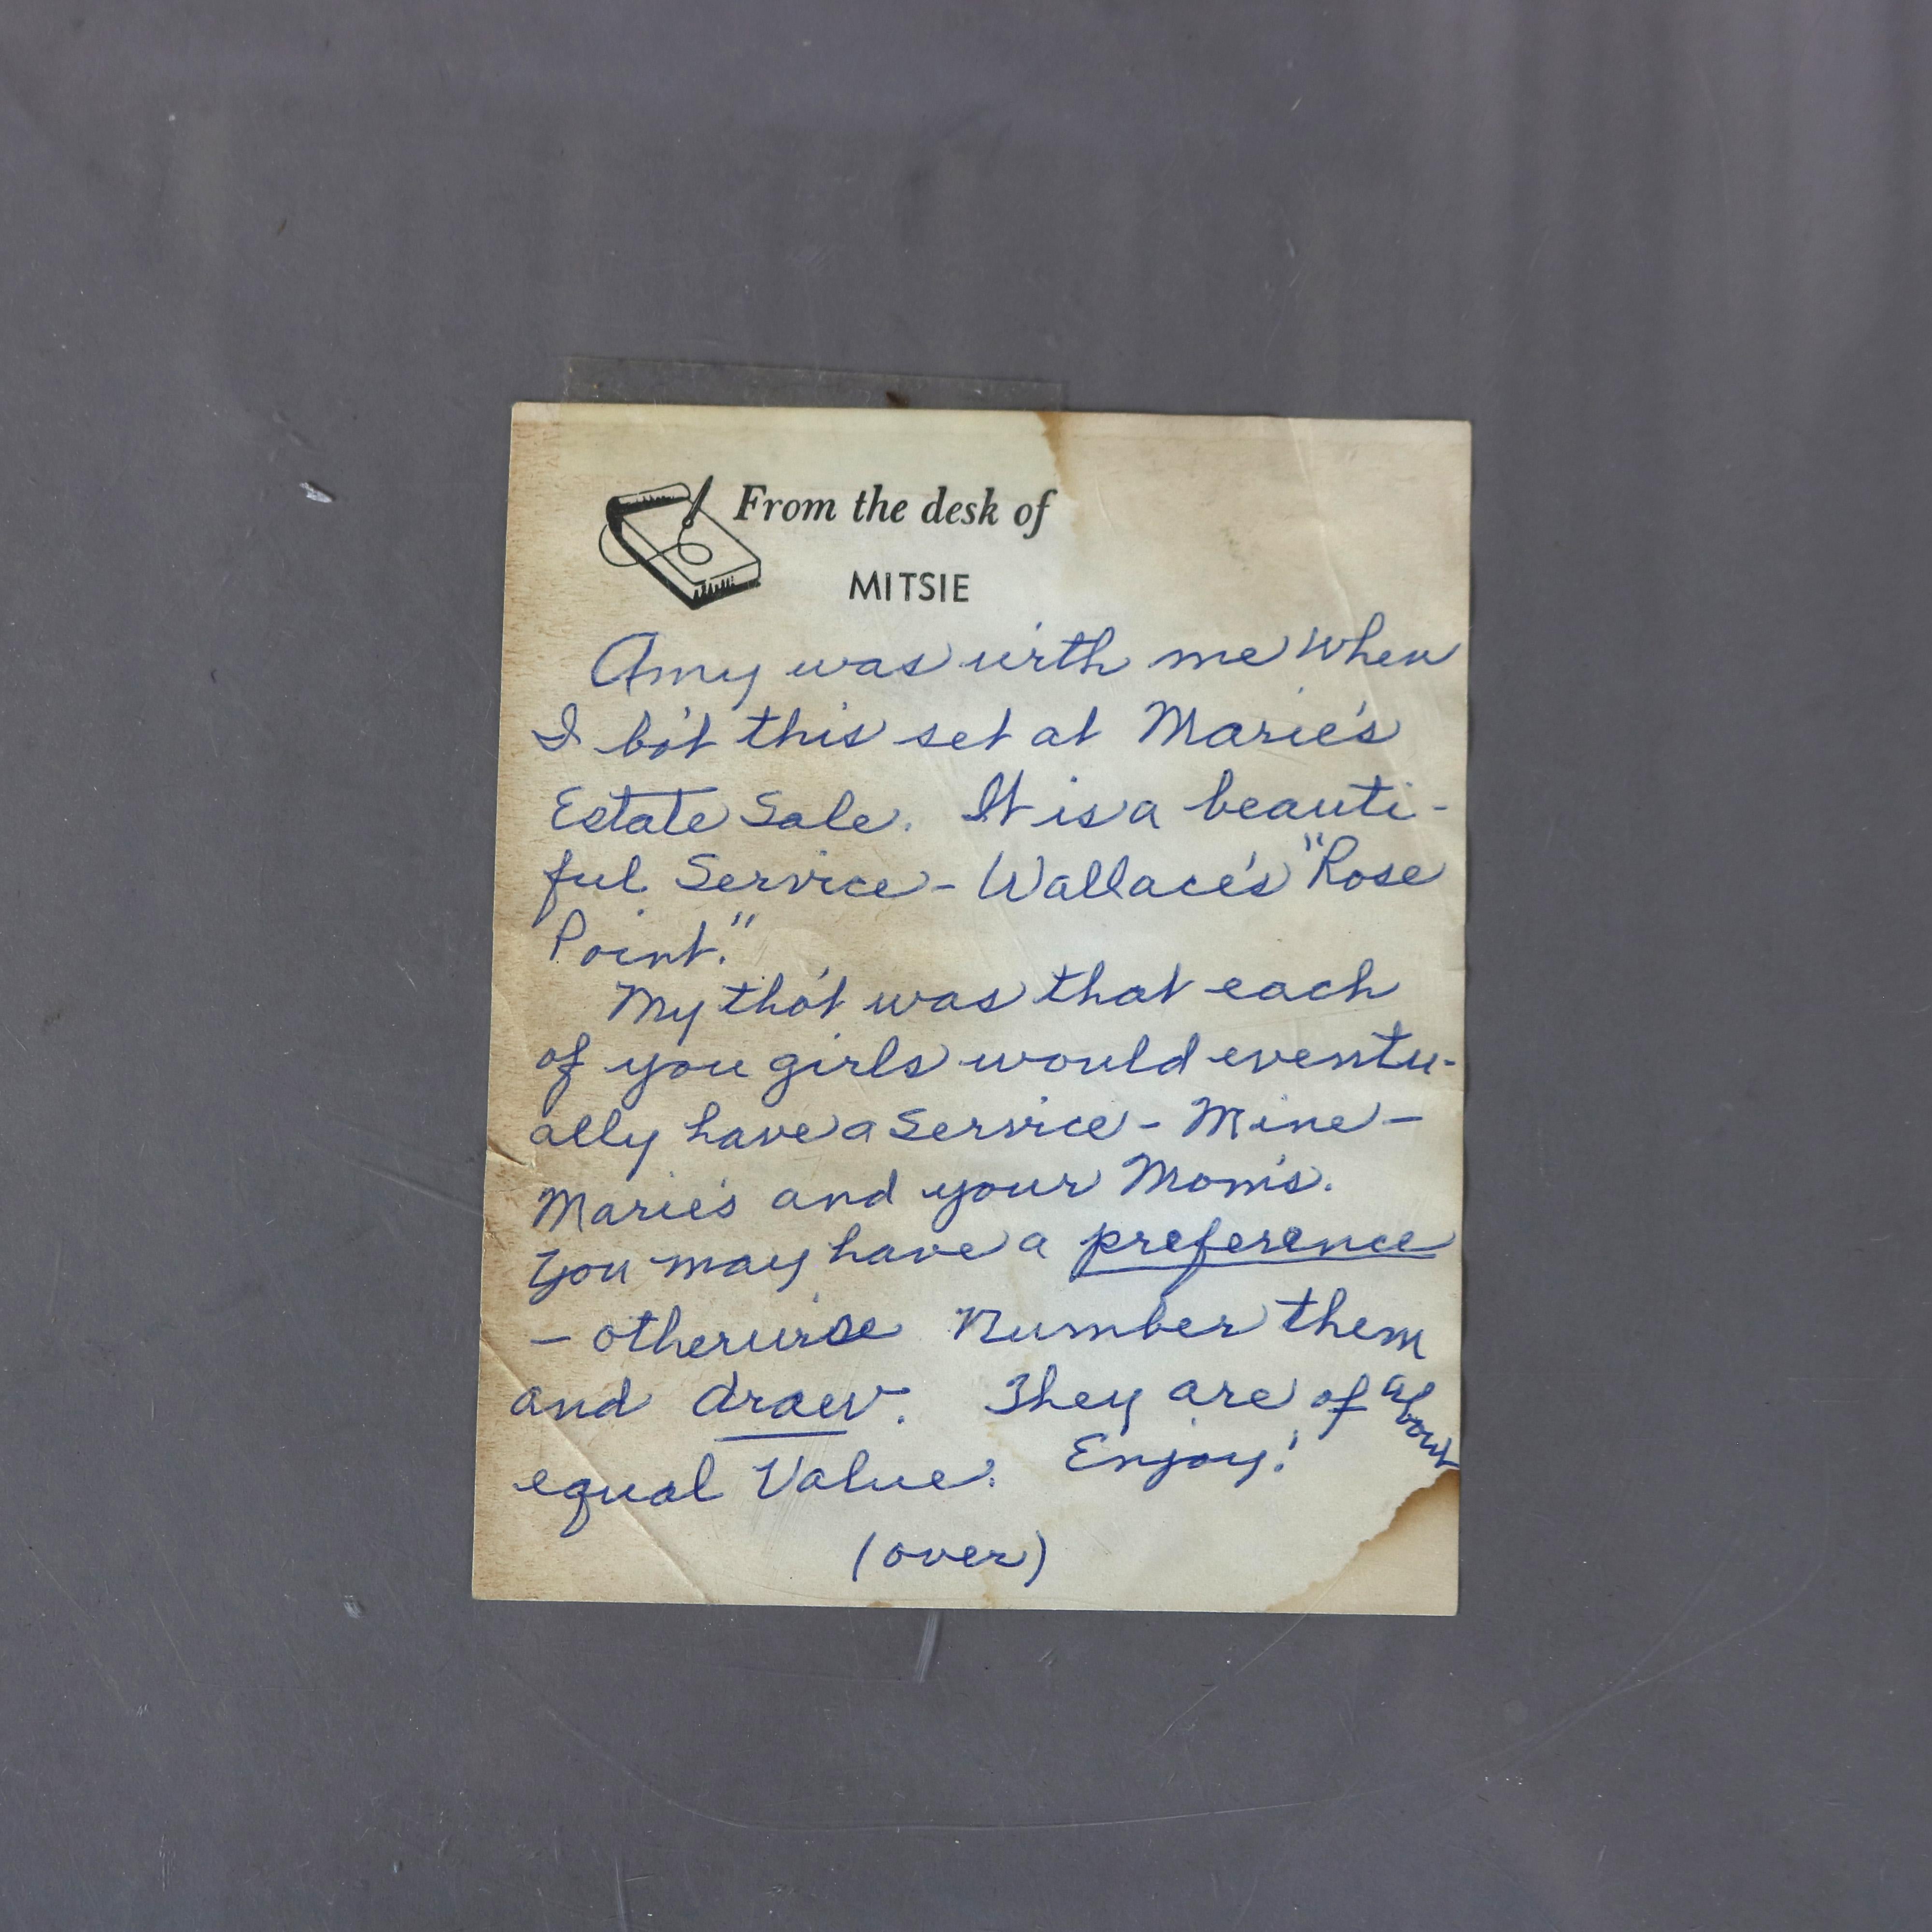 From the desk of
MITSIE
Amy was with me when
I bo't this set at Marie's
Estate Sale. It is a beauti-
ful Service - Wallace's "Rose
Point."
My tho't was that each
of you girls would eventu-
ally have a Service - Mine -
Marie's and your Mom's.
You may have a preference
- otherwise Number them
and draw. They are of about
equal Value. Enjoy!
(over)